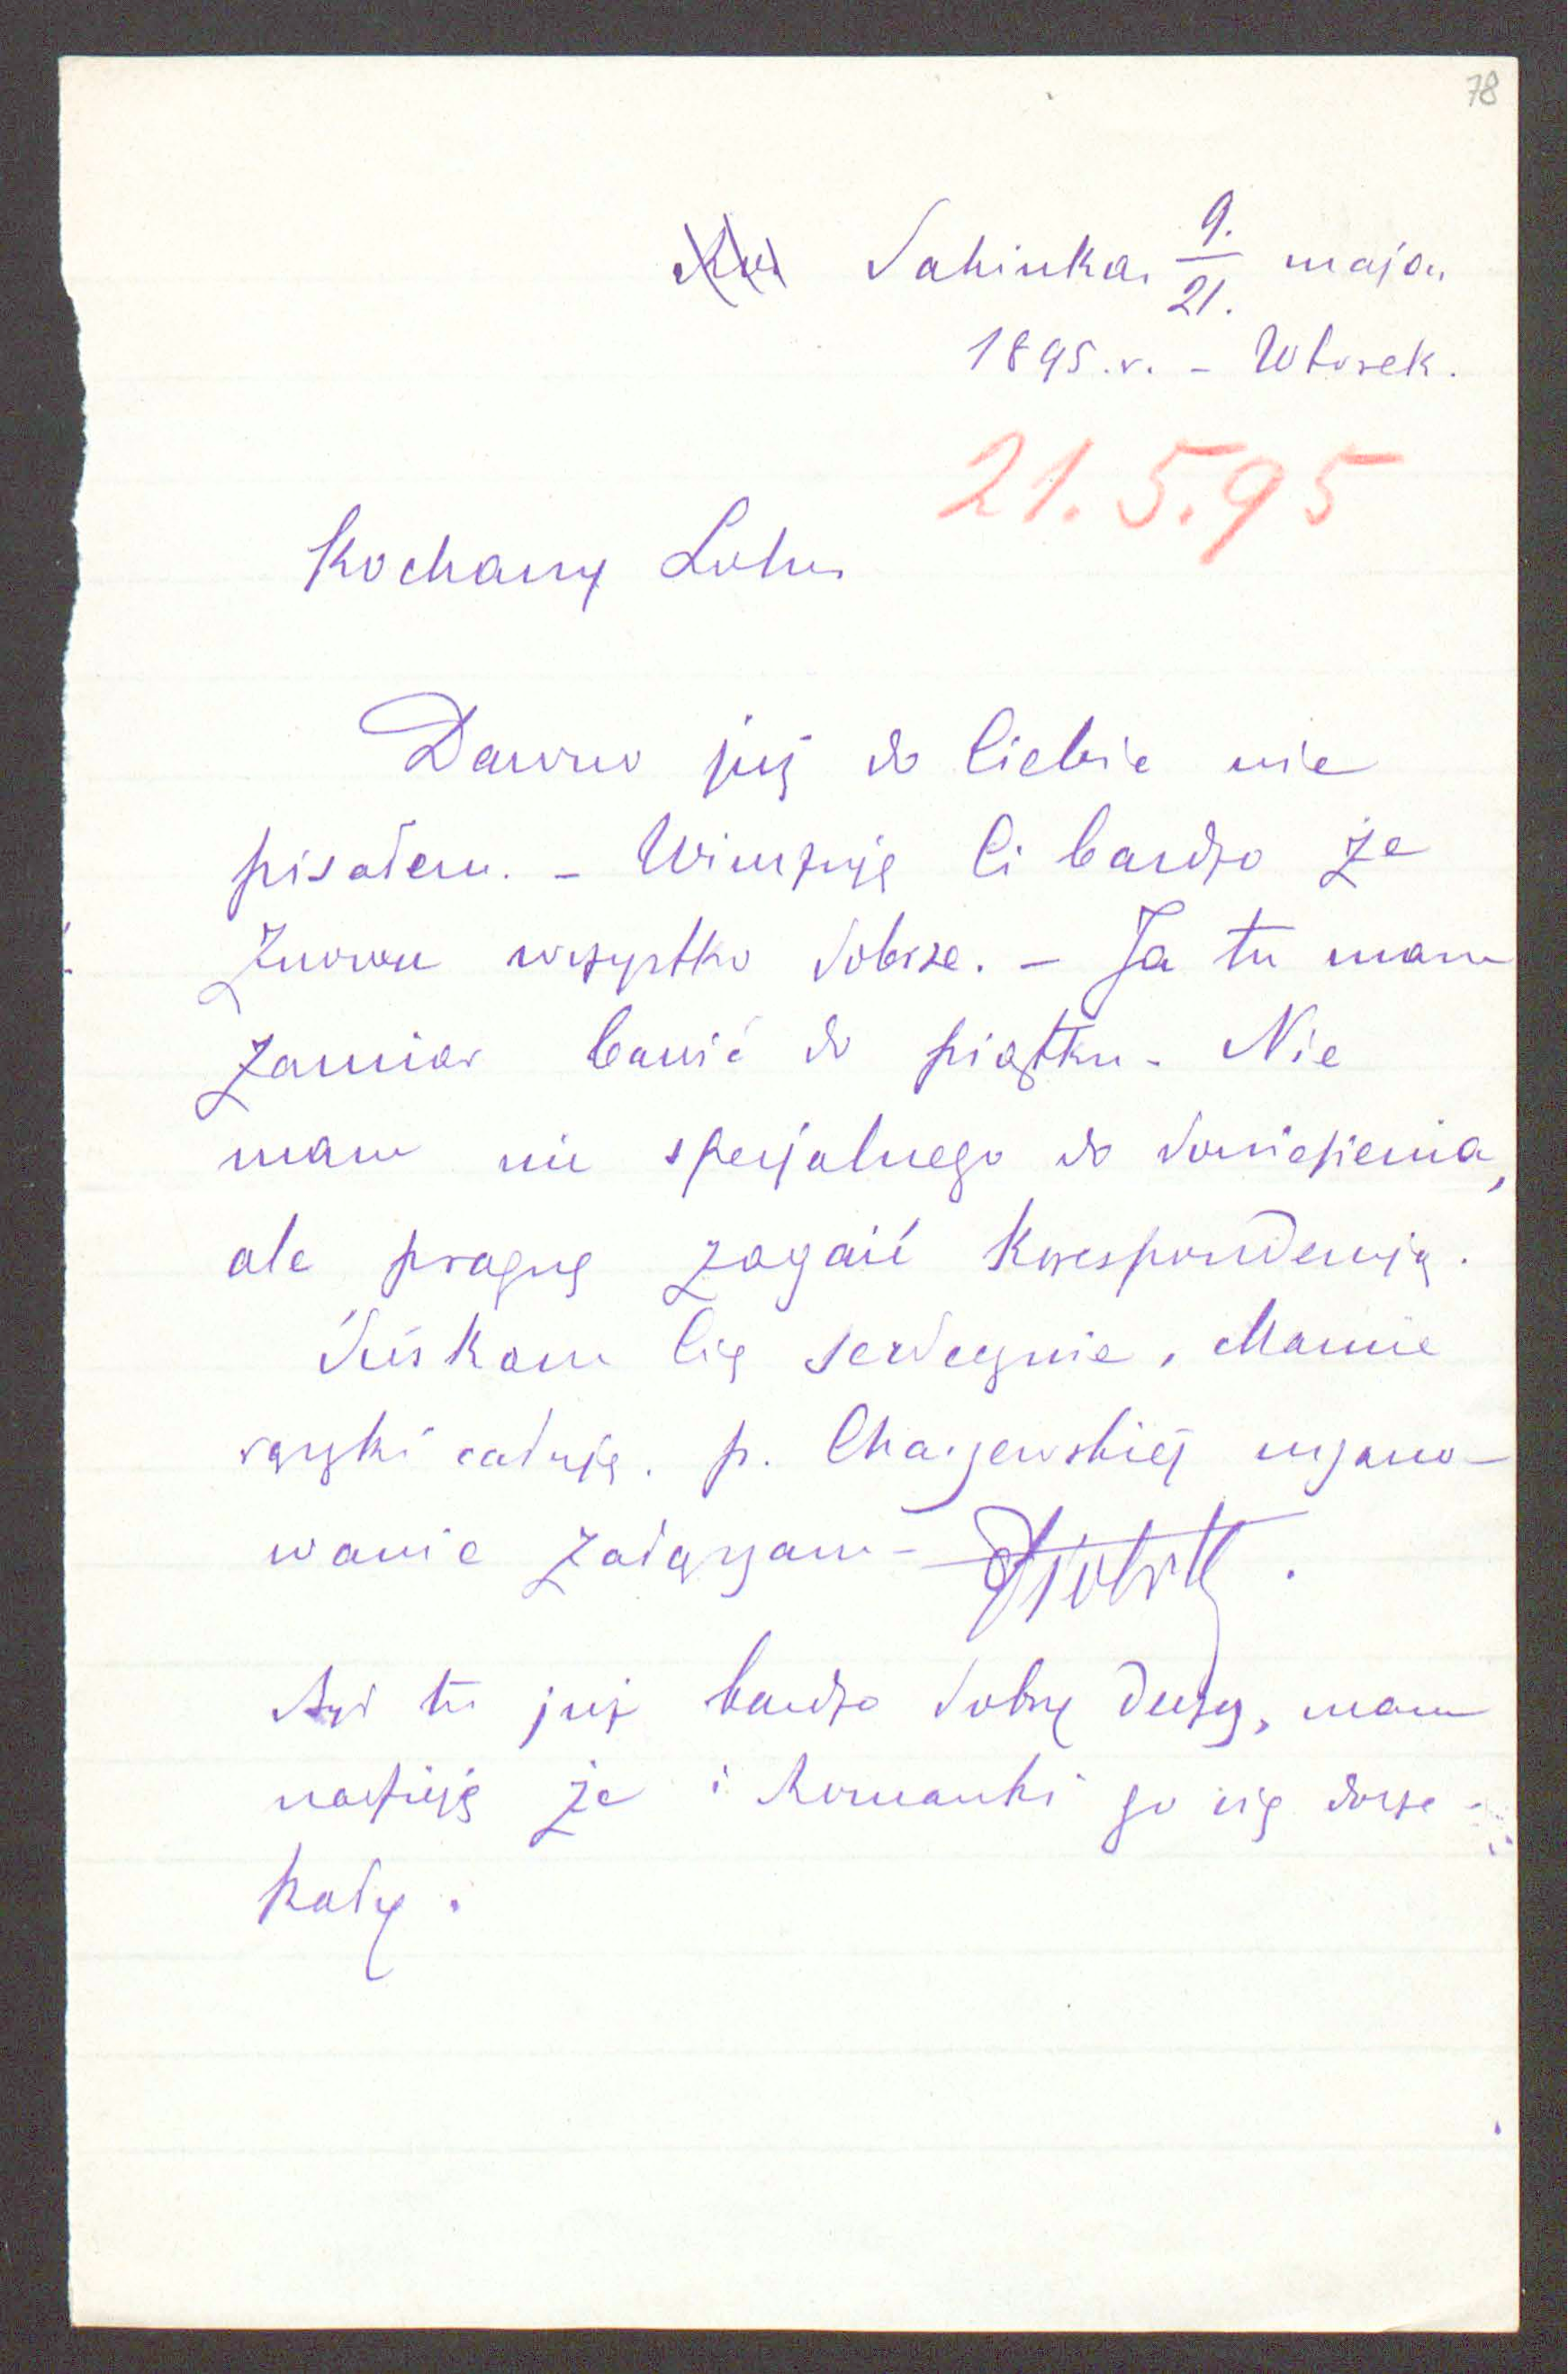 78
Sahinka 9./21. maja
1895.r. – Wtorek.
21.5.95
Kochany Lolu
Dawno już do Ciebie nie
pisałem. – Winszuję Ci bardzo że
znowu wszystko dobrze. – Ja tu mam
zamiar bawić do piątku – Nie
mam nic specjalnego do doniesienia,
ale pragnę zagaić korespondencją.
Ściskam Cię serdecznie, Mamie
rączki całuję. p. uszano-
wanie załączam –
tu już bardzo dobry duży, mam
nadzieję że i Romanki go się docze-
kały.